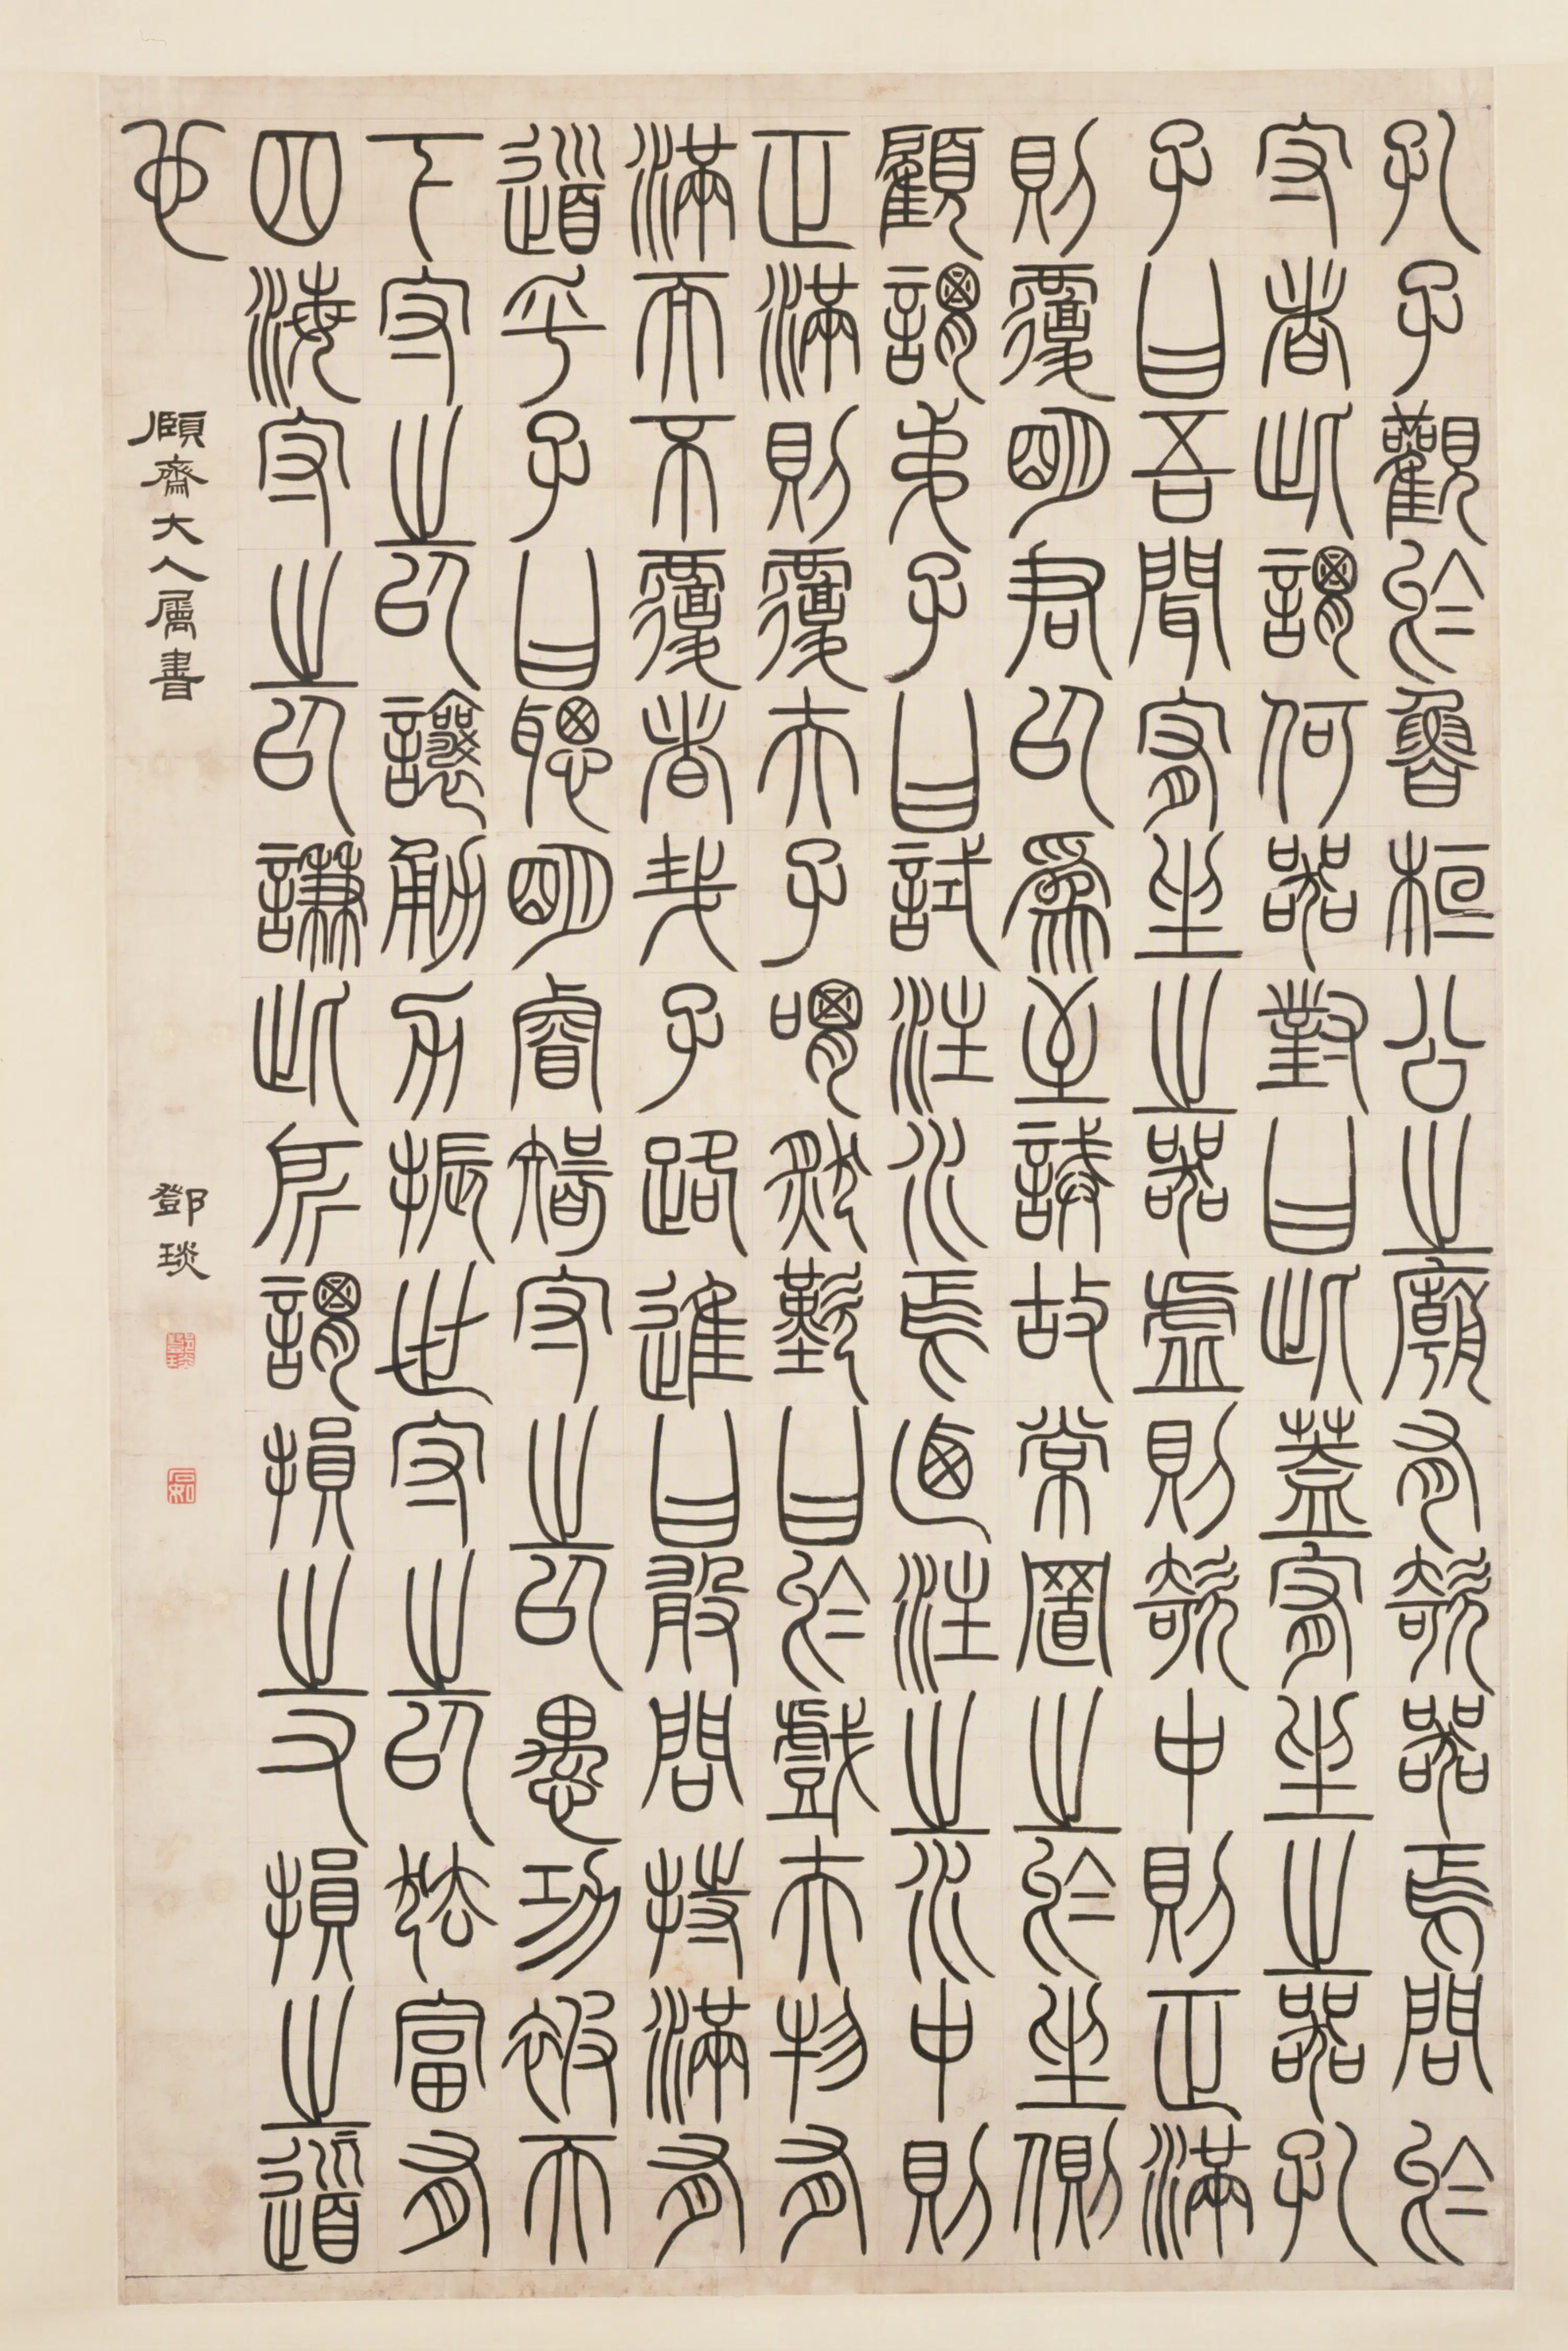 孔子觀於魯桓公之廟有欹器焉問於
守者此謂何器對曰此蓋宥坐之器孔
子曰吾聞宥坐之器虛則欹中則正滿
則覆明君以爲至誡故常置之於坐側
顧謂弟子曰試注水焉迺注之水中則
正滿則覆夫子喟然歎曰於戲夫物有
滿而不覆者哉子路進曰敢問持滿有
道乎子曰聰明睿智守之以愚功被天
下守之以讓勇力振世守之以怯富有
四海守之以謙此所謂損之又損之道
也
頤齋大人屬書
鄧琰
鄧琰
石如